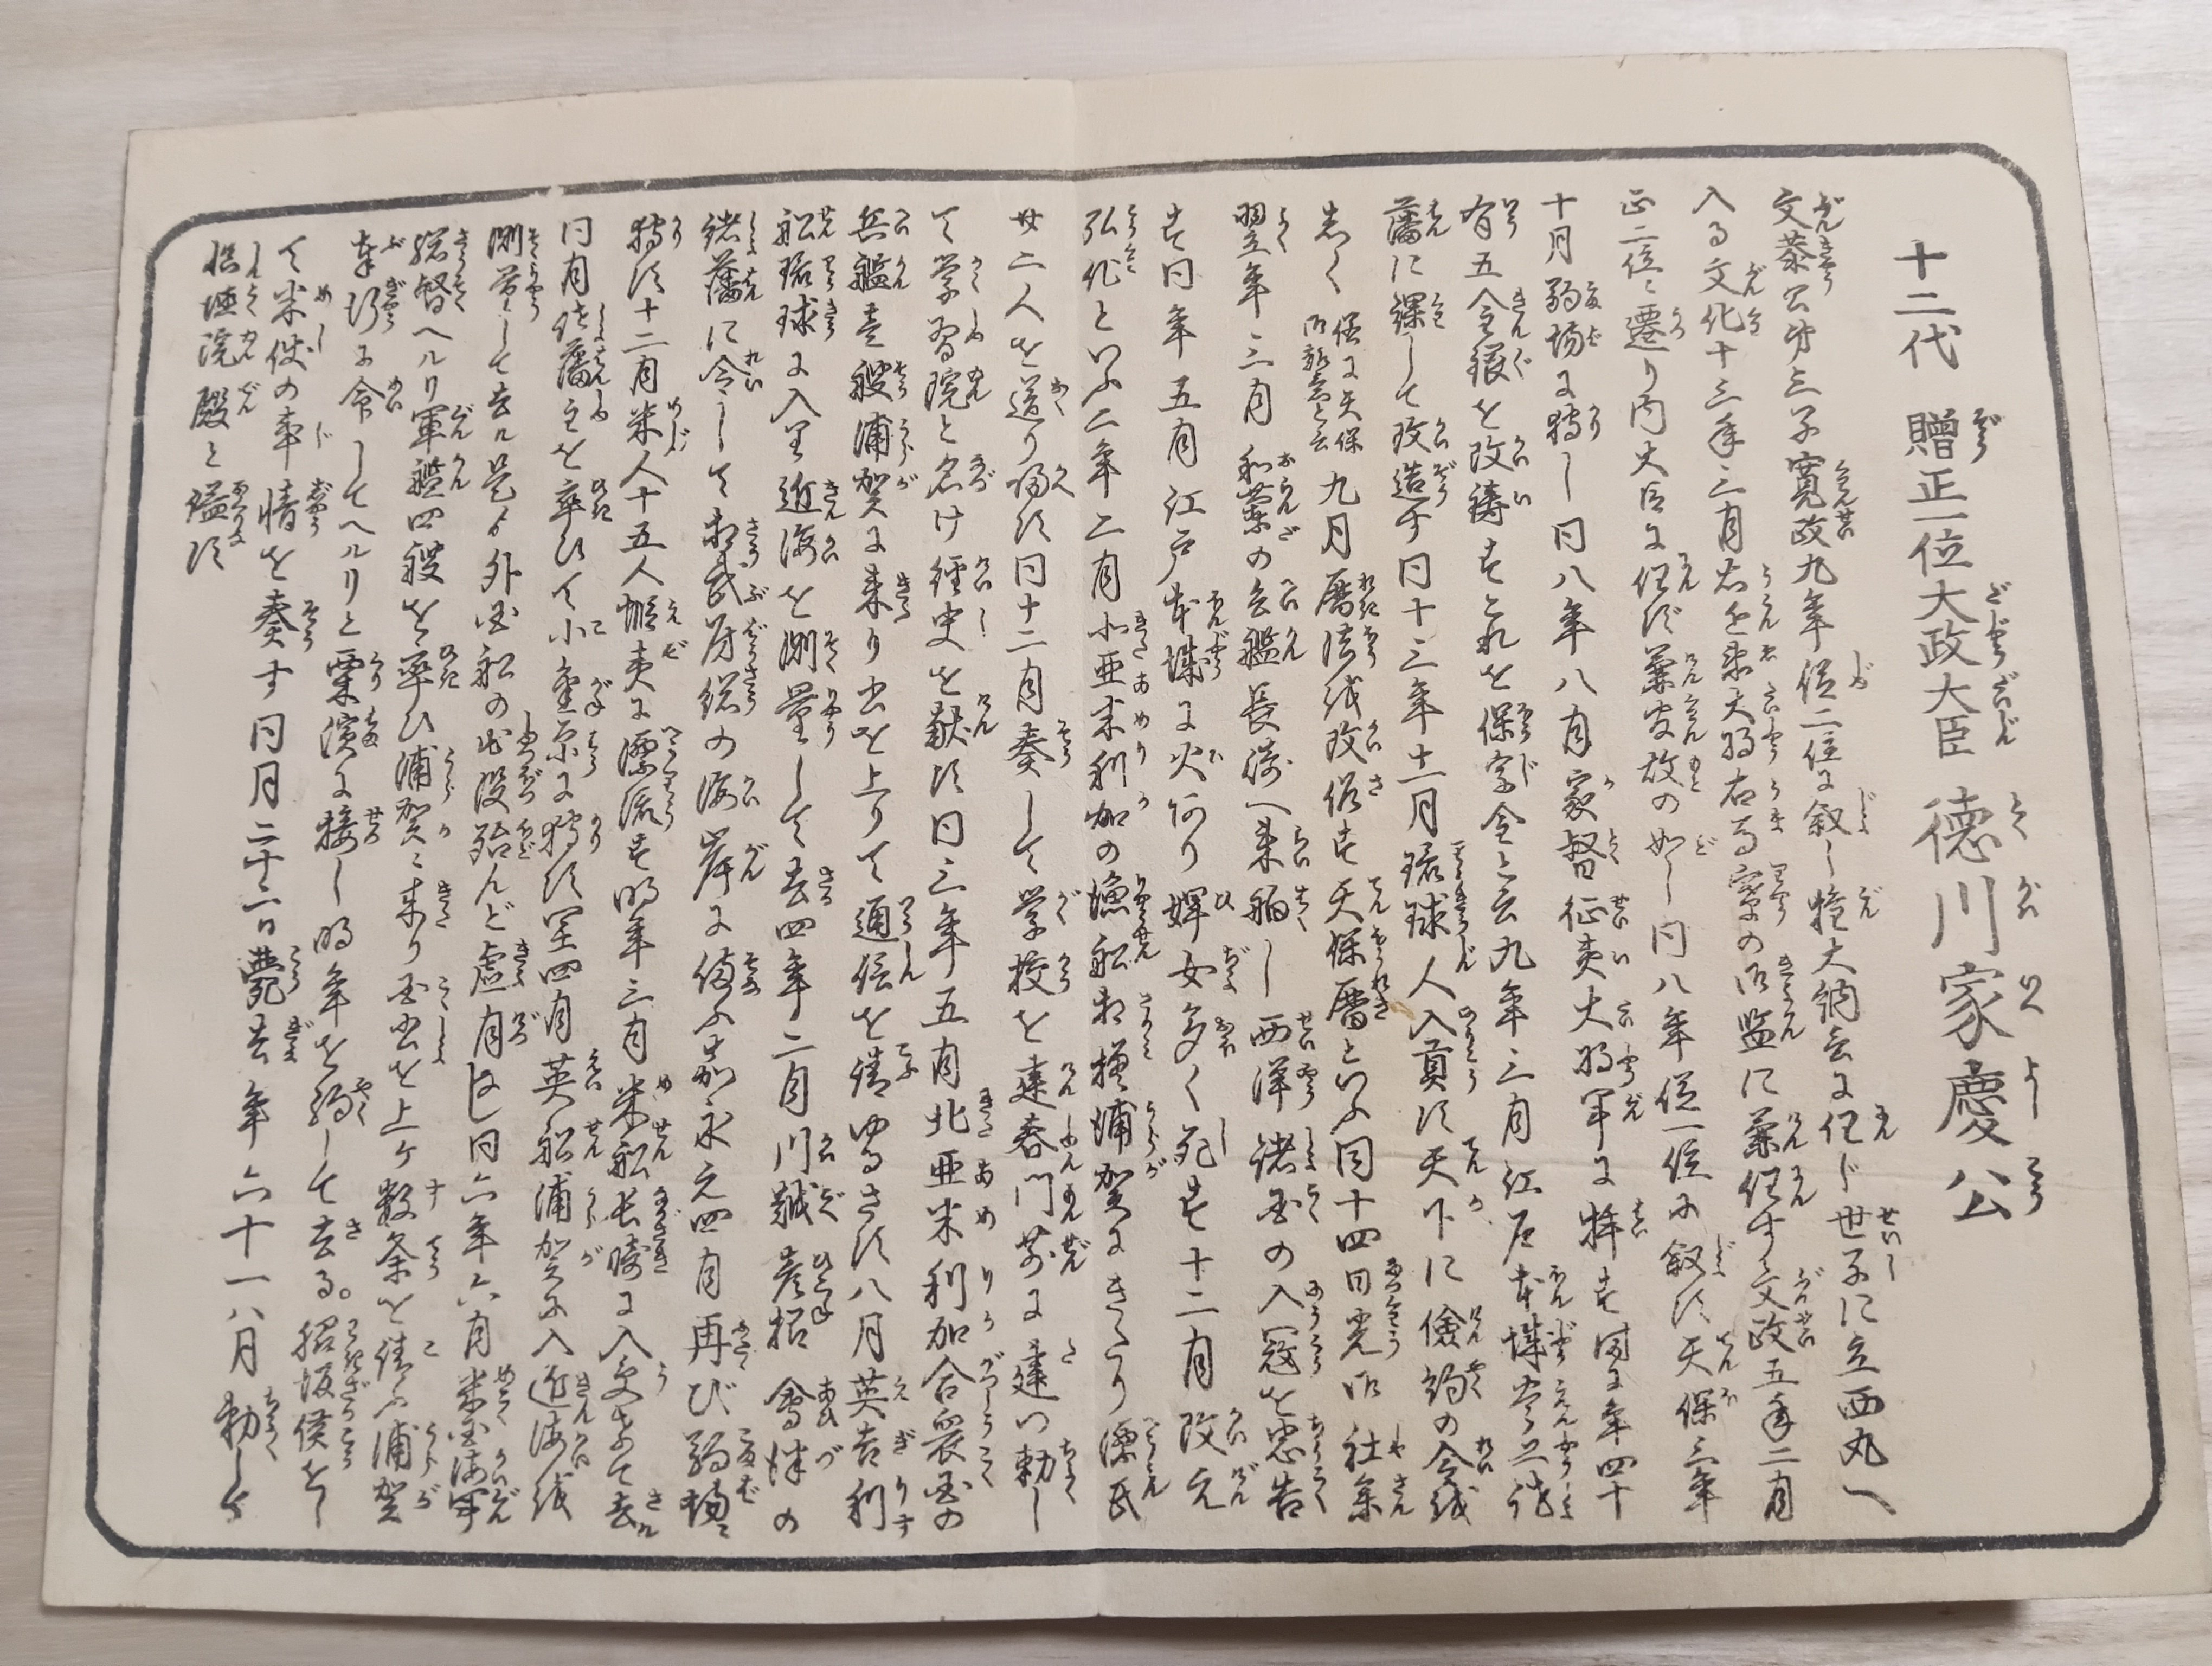 十二代 贈正一位大政大臣 徳川家慶公
文恭公第三子寛政九年従二位に叙し権大納言に任じ世子に立西丸へ
入る文化十三年三月右近衛大将右馬寮の御監に兼任す文政五年二月
正二位に遷り内大臣に任ず兼官故の如し同八年従一位に叙す天保三年
十月駒場に狩し同八年八月家督征夷大将軍に拝す同年四十
有五金銀を改鋳すこれを保字金と云九年三月江戸本城
藩に課して改造す同十三年十一月琉球人入貢す天下に倹約の令を
九月暦法を改俗す天保暦といふ同十四日光御社参
翌年三月和蘭の兵艦長崎へ来舶し西洋諸国の入冠を忠告
す同年五月江戸本城に火あり婢女多く死す十二月改元
弘化といふ二年二月北亜米利加の漁船相模浦賀にきたり漂民
廿二人を送り帰す同十二月奏して学校を建春門前に建つ勅し
て学習院と名け経史を献ず同三年五月北亜米利加合衆国の
兵艦壱艘浦賀に来り書を上りて通信を請ゆるさず八月英吉利
船琉球に入り近海を測量して去四年二月川越彦根會津の
諸藩に令して相武房総の海岸に備ふ嘉永元四月再び駒場に
狩す十二月米人十五人蝦夷に漂流す明年三月米船長崎に入受けて去
同月諸藩主を率ひて小金原に狩す閏四月英船浦賀に入近海を
測量して去ル是より外国船の出没殆んど虚月なし同六年六月米国海軍
総督ヘルリ軍艦四艘を率ひ浦賀に来り国書を上ケ数条を請ふ浦賀
奉行に令してヘルリと栗濱に接し明年を約して去る。
て米使の事情を奏す同月二十二日薨去年六十一八月勅して
慎徳院殿と謚す